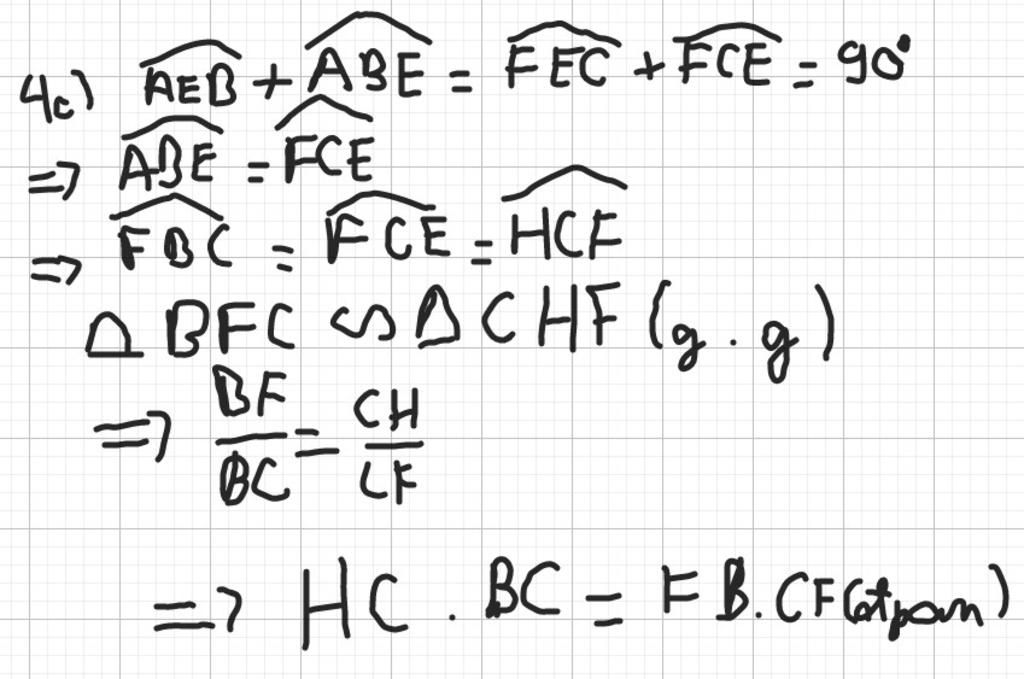 4c) $\widehat{AEB} + \widehat{ABE} = \widehat{FEC} + \widehat{FCE} = 90°$
=> $\widehat{ABE} = \widehat{FCE}$
=> $\widehat{FBC} = \widehat{FCE} = \widehat{HCF}$
Δ BFC ∽ Δ CHF (g . g)
=> $\frac{BF}{BC} = \frac{CH}{CF}$
=> HC . BC = FB . CF (đtpcm)